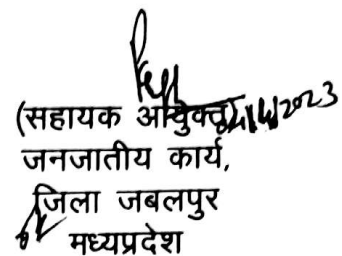 (सहायक आयुक्त)
जनजातीय कार्य,
जिला जबलपुर
मध्यप्रदेश